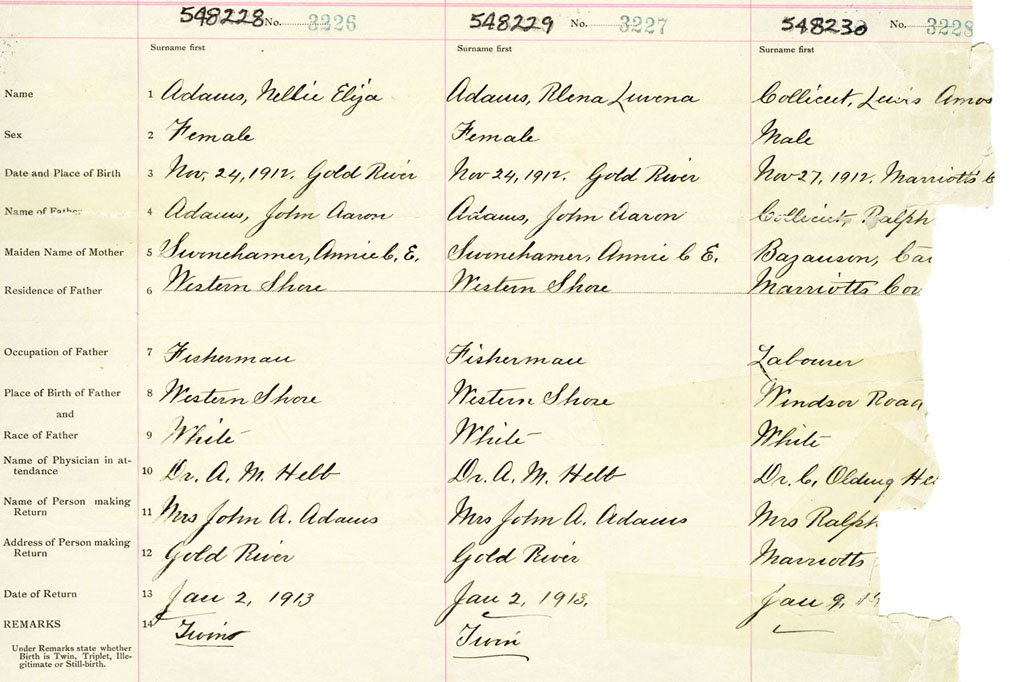 548228 No. 3226 548229 No. 3227 548230 No. 3228
Surname first Surname first Surname first
Name 1 Adams, Nellie Eliza Adams, Rlena Luvena Collicut, Lewis Amos
Sex 2 Female Female Male
Date and Place of Birth 3 Nov, 24, 1912. Gold River Nov 24, 1912. Gold River Nov 27, 1912. Marriotts C
Name of Father 4 Adams, John Aaron Adams, John Aaron Collicut, Ralph
Maiden Name of Mother 5 Swonehamer, Annie C. E. Swonehamer, Annie C E. Bazauson, Ca
Residence of Father 6 Western Shore Western Shore Marriotts Cov
Occupation of Father 7 Fisherman Fisherman Labourer
Place of Birth of Father 8 Western Shore Western Shore Windsor Road
and
Race of Father 9 White White White
Name of Physician in at-
tendance 10 Dr. A. M. Hebb Dr. A. M. Hebb Dr. C. Olding He
Name of Person making
Return 11 Mrs John A. Adams Mrs John A. Adams Mrs Ralph
Address of Person making
Return 12 Gold River Gold River Marriotts
Date of Return 13 Jan 2, 1913 Jan 2, 1913. Jan 9, 19
REMARKS 14 Twins Twin
Under Remarks state whether
Birth is Twin, Triplet, Ille-
gitimate or Still-birth.